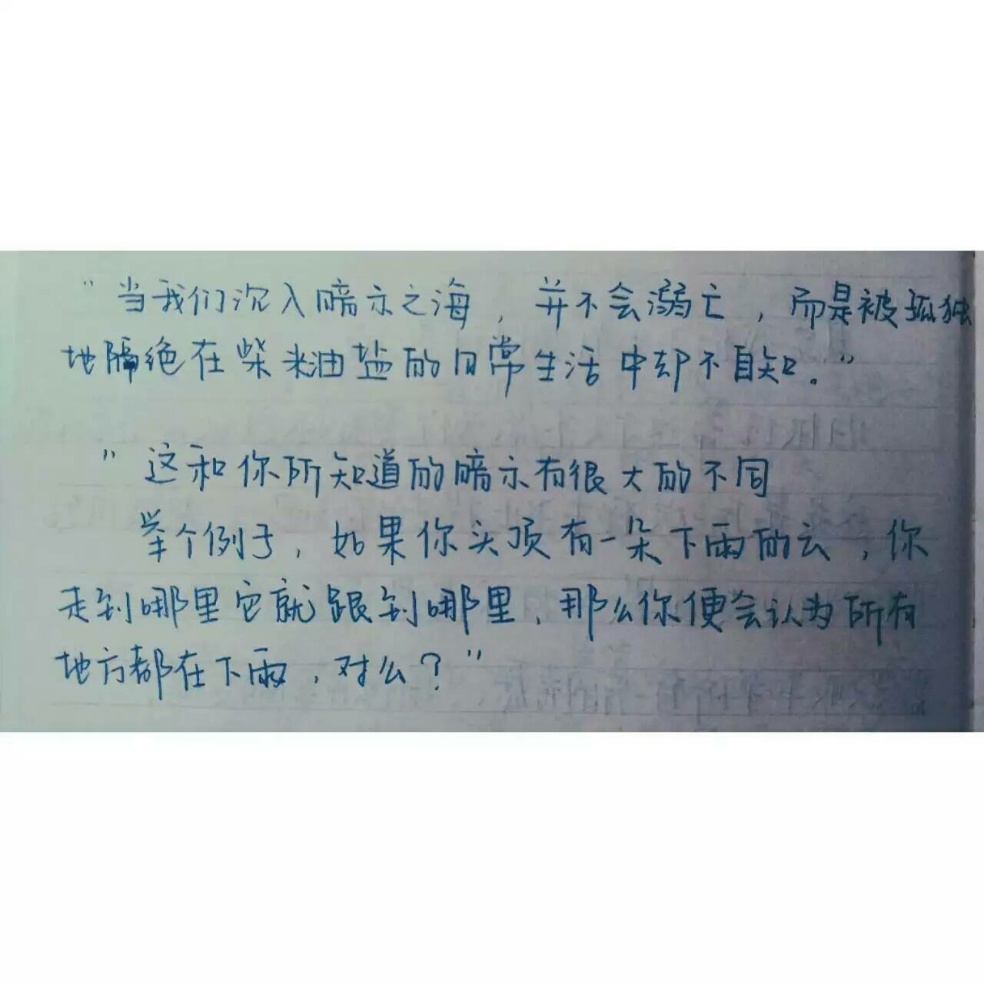 "当我们沉入暗示之海，并不会溺亡，而是被孤独
地隔绝在柴米油盐的日常生活中却不自知。"
"这和你所知道的暗示有很大的不同
举个例子，如果你头顶有一朵下雨的云，你
走到哪里它就跟到哪里，那么你便会认为所有
地方都在下雨，对么？"